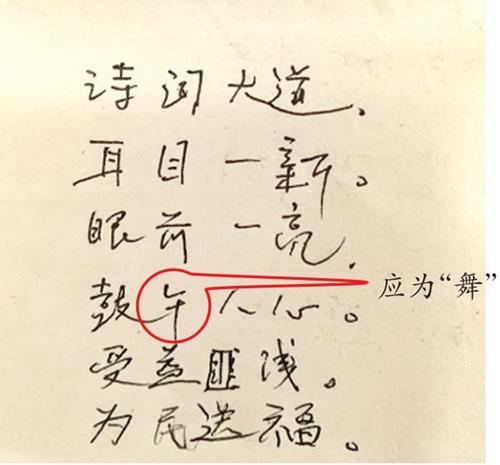 诗词大道.
耳目一新。
眼前一亮.
鼓午人心。
应为“舞”
受益匪浅。
为民送福。